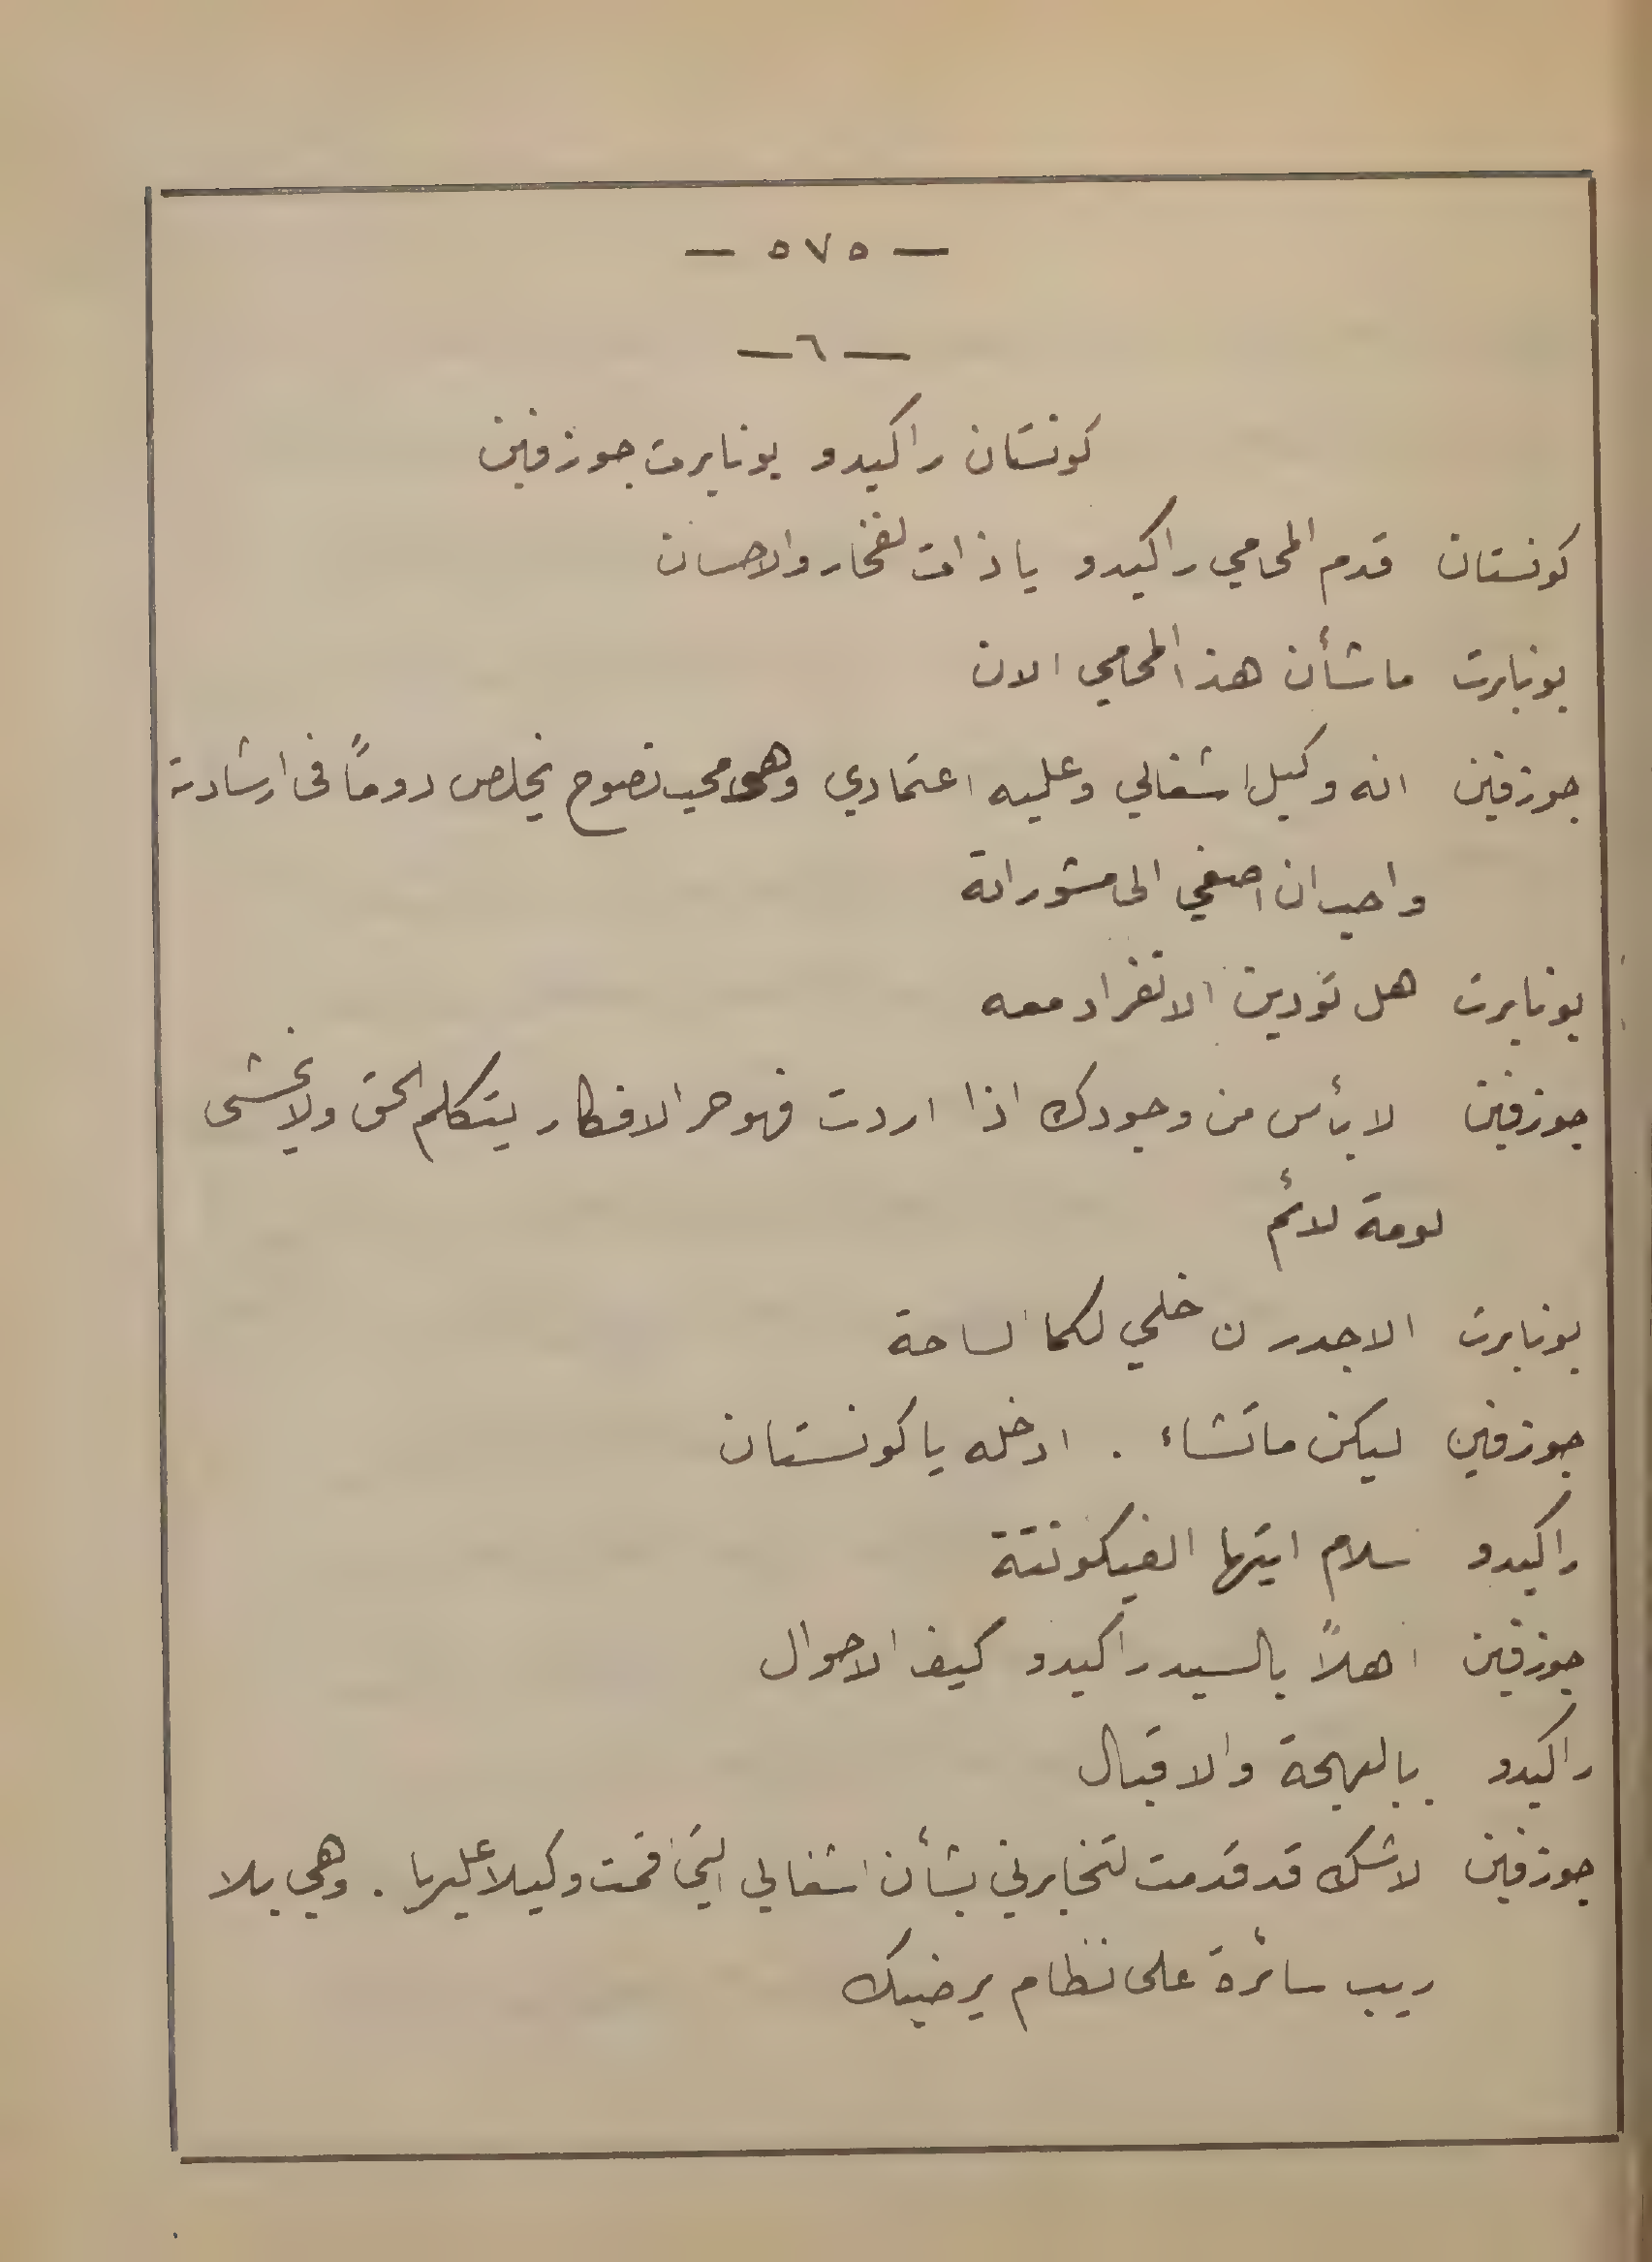 — ٥٧٥ —
— ٦ —
كونستان راكيدو بونابرت جوزفين
كونستان قدم المحامي راكيدو يا ذات لفخار والاحسان
بونابرت ما شأن هذا المحامي الان
جوزفين انه وكيل اشغالي وعليه اعتمادي وهو محب نصوح يخلص دوماً في ارشاداته
واحب ان اصغي الى مشوراته
بونابرت هل تودين الانفراد معه
جوزفين لا بأس من وجودك اذا اردت فهو حر الافكار يتكلم الحق ولا يخشى
لومة لائم
بونابرت الاجدر ن خلي لكما الساحة
جوزفين ليكن ما تشاء . ادخله يا كونستان
راكيدو سلام ايتها الفيكونتة
جوزفين اهلاً بالسيد راكيدو كيف الاحوال
راكيدو بالبهجة والاقبال
جوزفين لا شك قد قدمت لتخابرني بشأن اشغالي التي اقمت وكيلا عليها . وهي بلا
ريب سائرة على نظام يرضيك